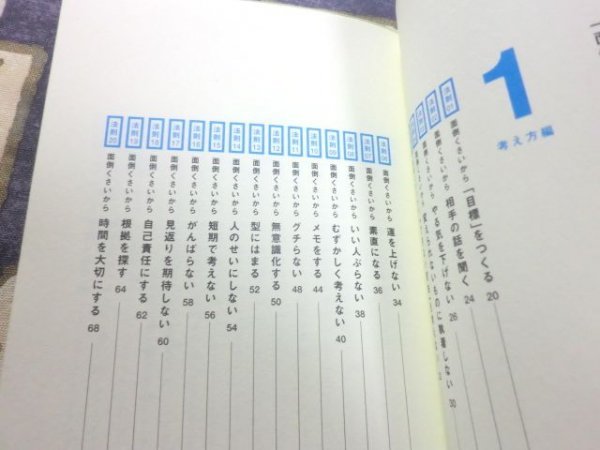 1
考え方編
法則01 面倒くさいから 「目標」をつくる 20
法則02 面倒くさいから 相手の話を聞く 24
法則03 面倒くさいから やる気を下げない 26
面倒くさいから 変えられないものに執着しない 30
法則06 面倒くさいから 運を上げない 34
法則07 面倒くさいから 素直になる 36
法則08 面倒くさいから いい人ぶらない 38
法則09 面倒くさいから むずかしく考えない 40
法則10 面倒くさいから メモをする 44
法則11 面倒くさいから グチらない 48
法則12 面倒くさいから 無意識化する 50
法則13 面倒くさいから 型にはまる 52
法則14 面倒くさいから 人のせいにしない 54
法則15 面倒くさいから 短期で考えない 56
法則16 面倒くさいから がんばらない 58
法則17 面倒くさいから 見返りを期待しない 60
法則18 面倒くさいから 自己責任にする 62
法則19 面倒くさいから 根拠を探す 64
法則20 面倒くさいから 時間を大切にする 68